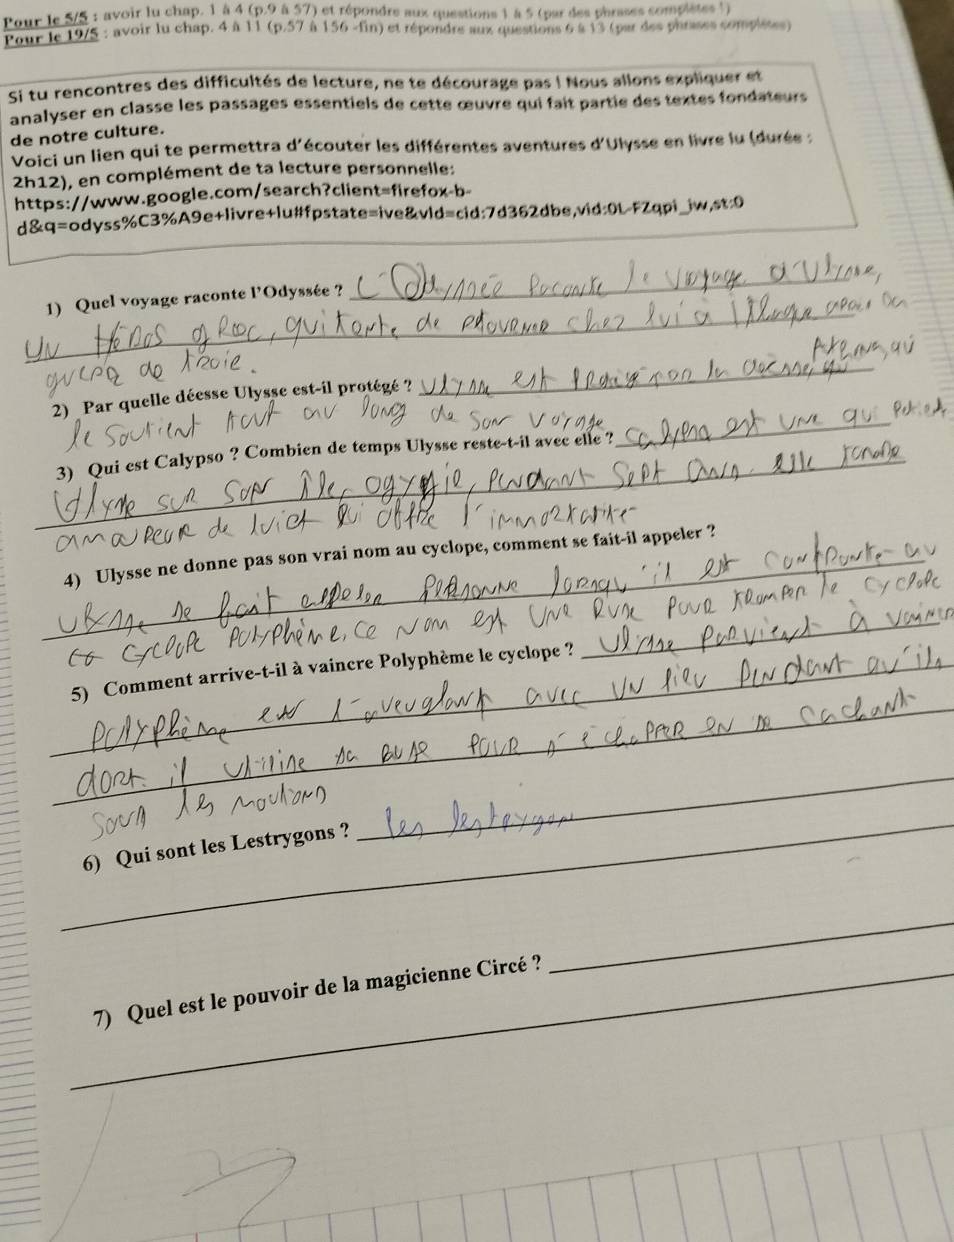 Pour le 5/5 : avoir lu chap. 1 à 4 (p.9 à 57) et répondre aux questions 1 à 5 (par des phrases complètes !)
Pour le 19/5 : avoir lu chap. 4 à 11 (p.57 à 156 -fin) et répondre aux questions 6 à 13 (par des phrases complètes)
Si tu rencontres des difficultés de lecture, ne te décourage pas ! Nous allons expliquer et
analyser en classe les passages essentiels de cette œuvre qui fait partie des textes fondateurs
de notre culture.
Voici un lien qui te permettra d'écouter les différentes aventures d'Ulysse en livre lu (durée :
2h12), en complément de ta lecture personnelle:
https://www.google.com/search?client=firefox-b-
d&q=odyss%C3%A9e+livre+lu#fpstate=ive&vld=cid:7d362dbe,vid:0L-FZqpi_jw,st:0
1) Quel voyage raconte l'Odyssée ? L'Odyssée raconte le voyage d'Ulysse,
un Héros grec, qui tente de retourner chez lui à Ithaque après la
guerre de troie.
2) Par quelle déesse Ulysse est-il protégé ? Ulysse est protégé par la déesse Athena, qui
le soutient tout au long de son voyage
3) Qui est Calypso ? Combien de temps Ulysse reste-t-il avec elle ? Calypso est une qui retient
Ulysse sur son île, ogygie, pendant sept ans. elle
amoureuse de lui et lui offre l'immortalité
4) Ulysse ne donne pas son vrai nom au cyclope, comment se fait-il appeler ?
Ulysse se fait appeler Personne lorsqu'il est confronte au
cyclope Polyphème, ce nom est une ruse pour tromper le cyclope
5) Comment arrive-t-il à vaincre Polyphème le cyclope ? Ulysse parvient à vaincre
Polyphème en l'aveuglant avec un pieu pendant qu'il
dort. il utilise sa ruse pour s'échapper en se cachant
sous les moutons
6) Qui sont les Lestrygons ? les lestrygons
7) Quel est le pouvoir de la magicienne Circé ?